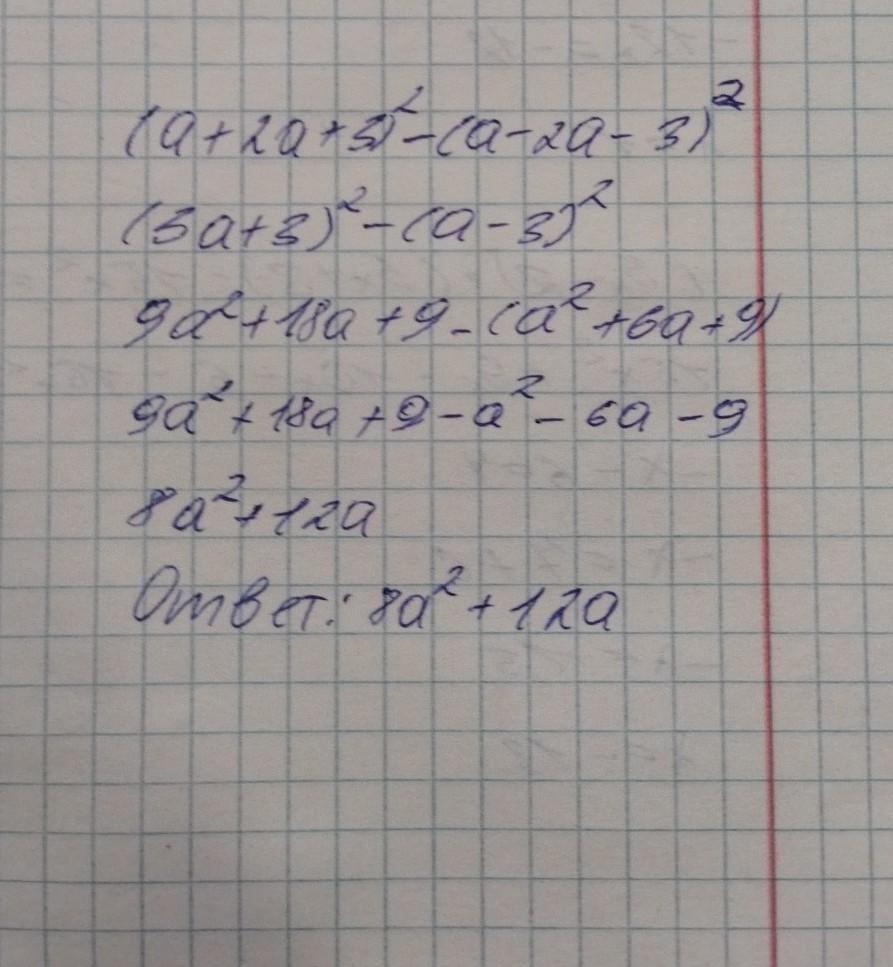 (a+2a+3)²-(a-2a-3)²
(3a+3)²-(a-3)²
9a²+18a+9-(a²+6a+9)
9a²+18a+9-a²-6a-9
8a²+12a
Ответ: 8a²+12a